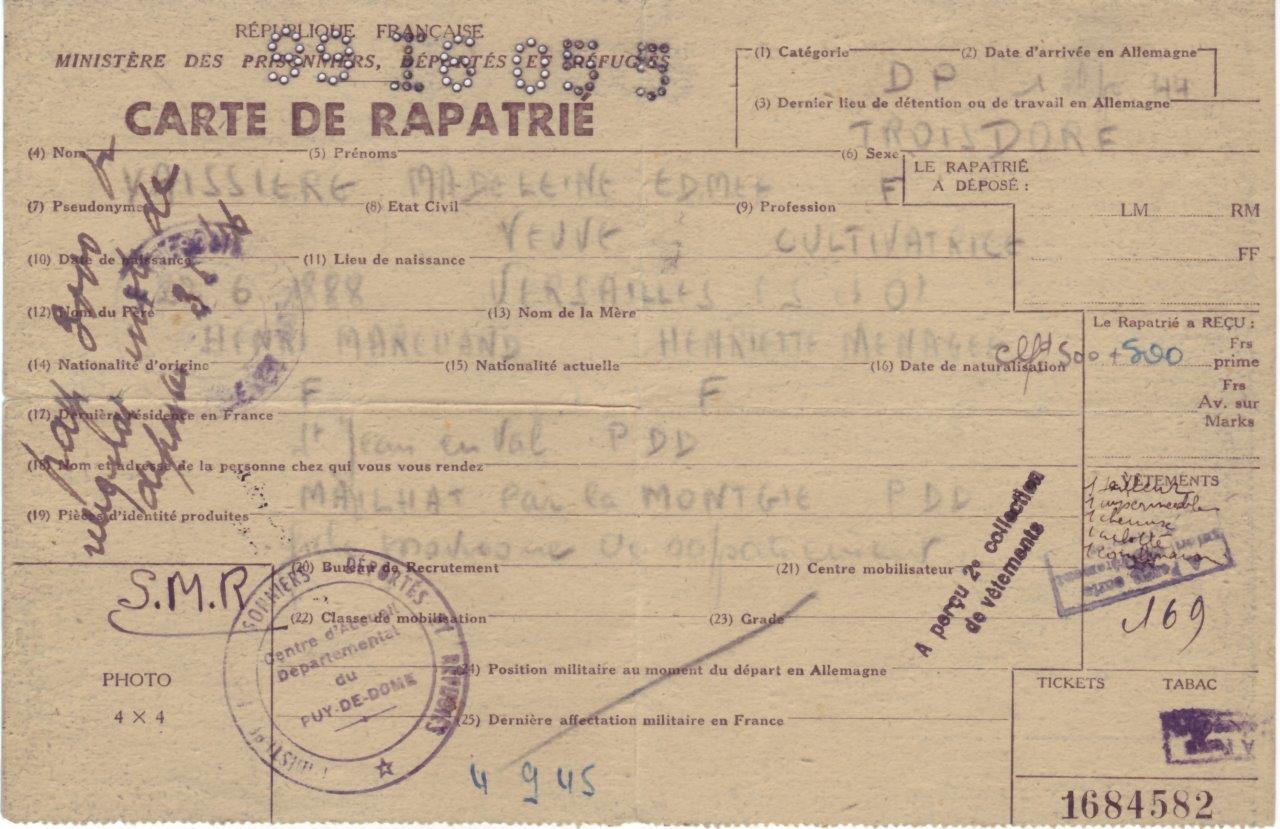 RÉPUBLIQUE FRANÇAISE
MINISTÈRE DES PRISONNIERS, DÉPORTÉS ET RÉFUGIÉS
CARTE DE RAPATRIÉ
(1) Catégorie (2) Date d'arrivée en Allemagne
DP 1 44
(3) Dernier lieu de détention ou de travail en Allemagne
TROISDORF
(4) Nom (5) Prénoms (6) Sexe
VAISSIERE MADELEINE EDMEE F
LE RAPATRIÉ
A DÉPOSÉ :
LM RM
FF
(7) Pseudonyme (8) Etat Civil (9) Profession
VEUVE CULTIVATRICE
(10) Date de naissance (11) Lieu de naissance
6 1888 VERSAILLES (S et O)
(12) Nom du Père (13) Nom de la Mère
HENRI MARCHAND HENRIETTE MENAGER
(14) Nationalité d'origine (15) Nationalité actuelle (16) Date de naturalisation
F F
Le Rapatrié a REÇU :
500 + 500 Frs
prime
Frs
Av. sur
Marks
(17) Dernière résidence en France
St Jean en Val PDD
(18) Nom et adresse de la personne chez qui vous vous rendez
MAILHAT par la MONTGIE PDD
(19) Pièces d'identité produites
VÊTEMENTS
169
A perçu 2e collection
de vêtements
S.M.R
(20) Bureau de Recrutement (21) Centre mobilisateur
(22) Classe de mobilisation (23) Grade
(24) Position militaire au moment du départ en Allemagne
(25) Dernière affectation militaire en France
Centre d'Accueil
Départemental
du
PUY-DE-DOME
DÉPORTÉS ET REFUGIES
PHOTO
4 × 4
4 9 45
TICKETS TABAC
1684582